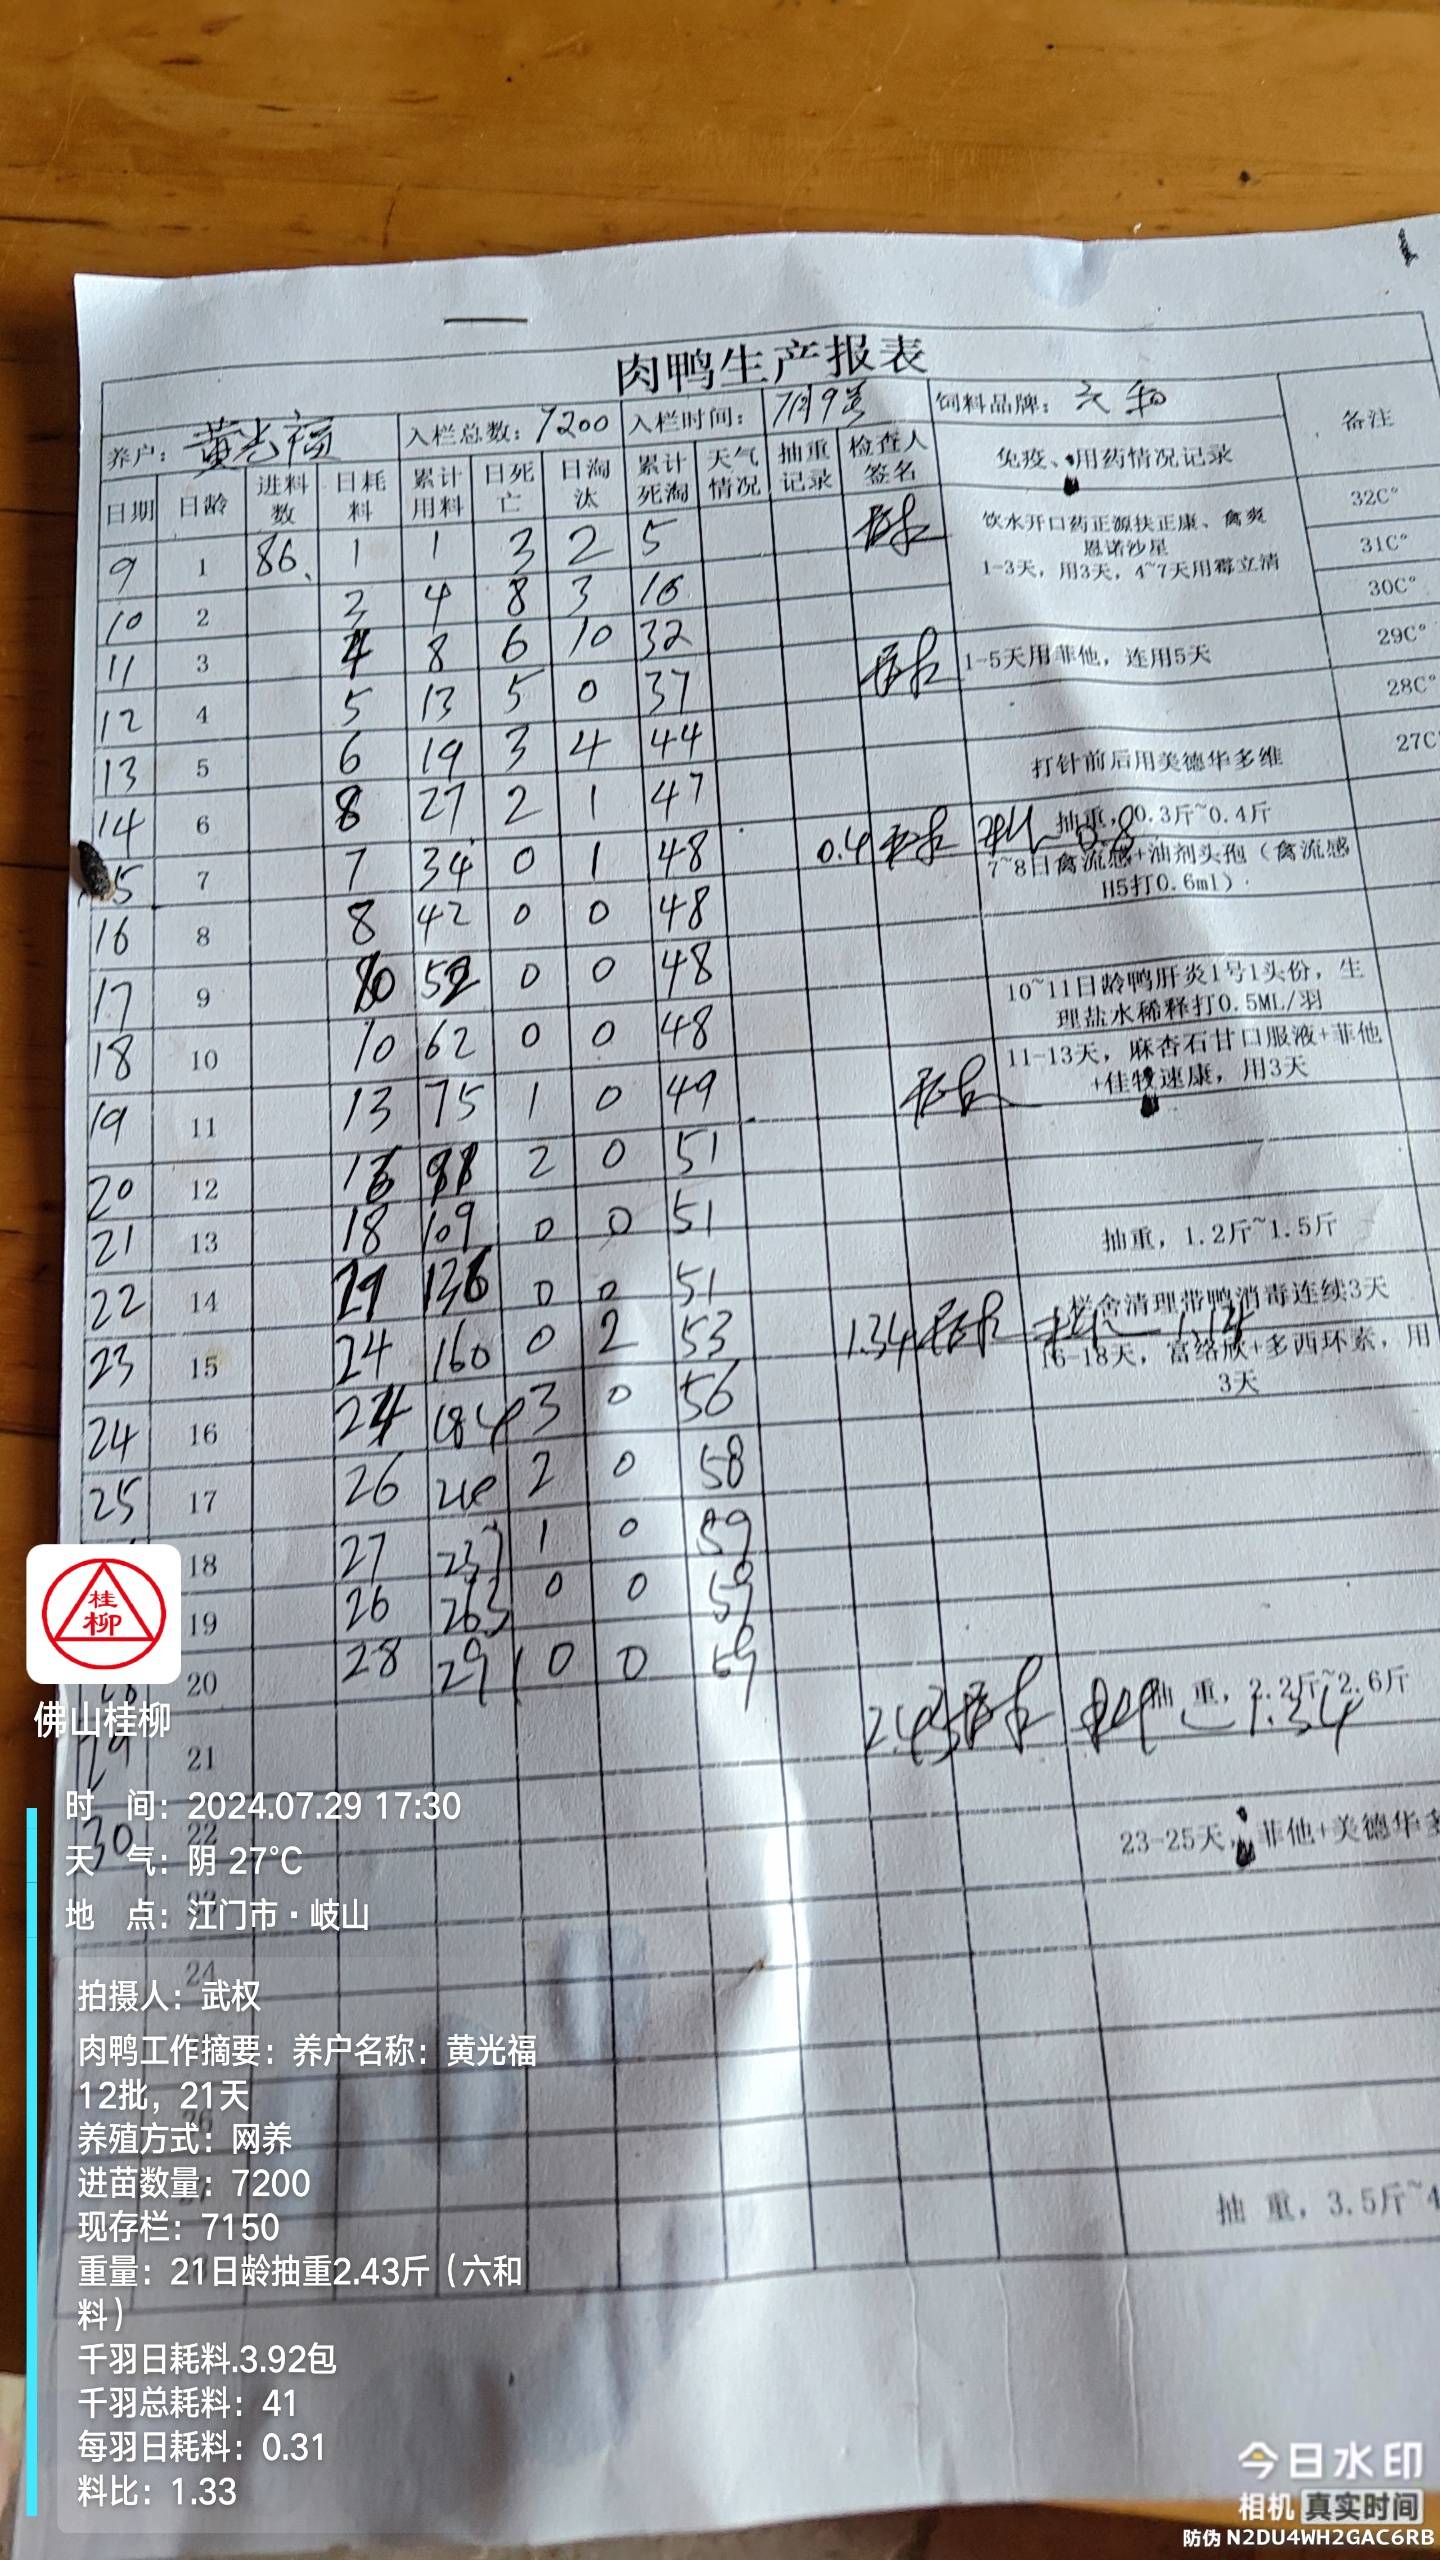 肉鸭生产报表
养户：黄光福 入栏总数：7200 入栏时间：7月9号 饲料品牌：六和 备注
日期 日龄 进料数 日耗料 累计用料 日死亡 日淘汰 累计死淘 天气情况 抽重记录 检查人签名 免疫、用药情况记录
9 1 86 1 1 3 2 5 32C°
饮水开口药正源扶正康、禽爽
恩诺沙星
1-3天，用3天，4~7天用霉立清
10 2 3 4 8 3 16 31C°
11 3 4 8 6 10 32 30C°
12 4 5 13 5 0 37 1-5天用菲他，连用5天 29C°
13 5 6 19 3 4 44 28C°
14 6 8 27 2 1 47 打针前后用美德华多维 27C°
15 7 7 34 0 1 48 0.4 抽重，0.3斤~0.4斤 0.8
7~8日禽流感+油剂头孢（禽流感
H5打0.6ml）
16 8 8 42 0 0 48
17 9 10 52 0 0 48
10~11日龄鸭肝炎1号1头份，生
理盐水稀释打0.5ML/羽
18 10 10 62 0 0 48
11-13天，麻杏石甘口服液+菲他
+佳牧速康，用3天
19 11 13 75 1 0 49
20 12 2 0 51
21 13 18 109 0 0 51 抽重，1.2斤~1.5斤
22 14 136 0 0 51 栏舍清理带鸭消毒连续3天
23 15 24 160 0 2 53 1.34 1.14
16-18天，富络欣+多西环素，用
3天
24 16 24 184 3 0 56
25 17 26 210 2 0 58
18 27 237 1 0 59
19 26 263 0 0 59
28 20 28 291 0 0 59
29 21 2.43 抽 重，2.2斤~2.6斤 1.34
30 22
23-25天，菲他+美德华多
24
抽 重，3.5斤~4
桂柳
佛山桂柳
时 间：2024.07.29 17:30
天 气：阴 27°C
地 点：江门市·岐山
拍摄人：武权
肉鸭工作摘要：养户名称：黄光福
12批，21天
养殖方式：网养
进苗数量：7200
现存栏：7150
重量：21日龄抽重2.43斤（六和
料）
千羽日耗料.3.92包
千羽总耗料：41
每羽日耗料：0.31
料比：1.33
今日水印
相机 真实时间
防伪 N2DU4WH2GAC6RB